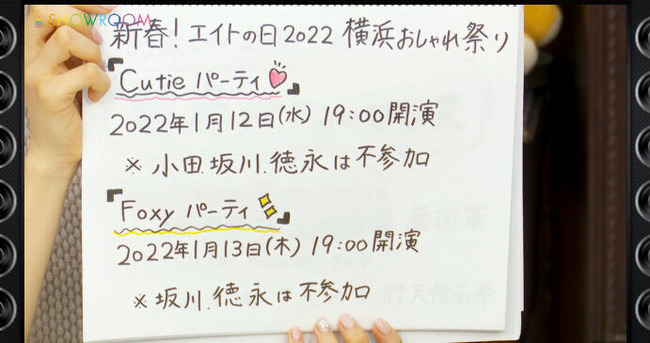 SHOWROOM
新春!エイトの日2022 横浜おしゃれ祭り
「Cutie パーティ」
2022年1月12日(水) 19:00開演
※ 小田.坂川.徳永は不参加
「Foxy パーティ」
2022年1月13日(木) 19:00開演
※ 坂川.徳永は不参加